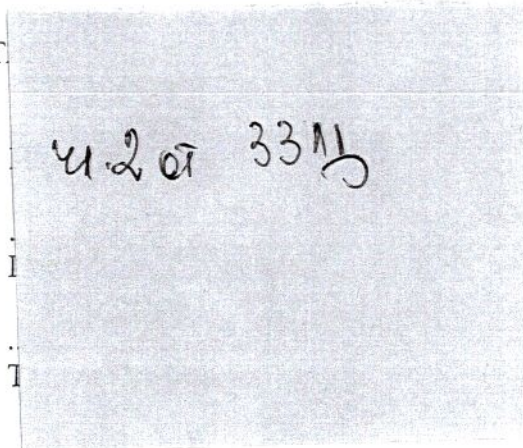 чл.2 от ЗЗЛД